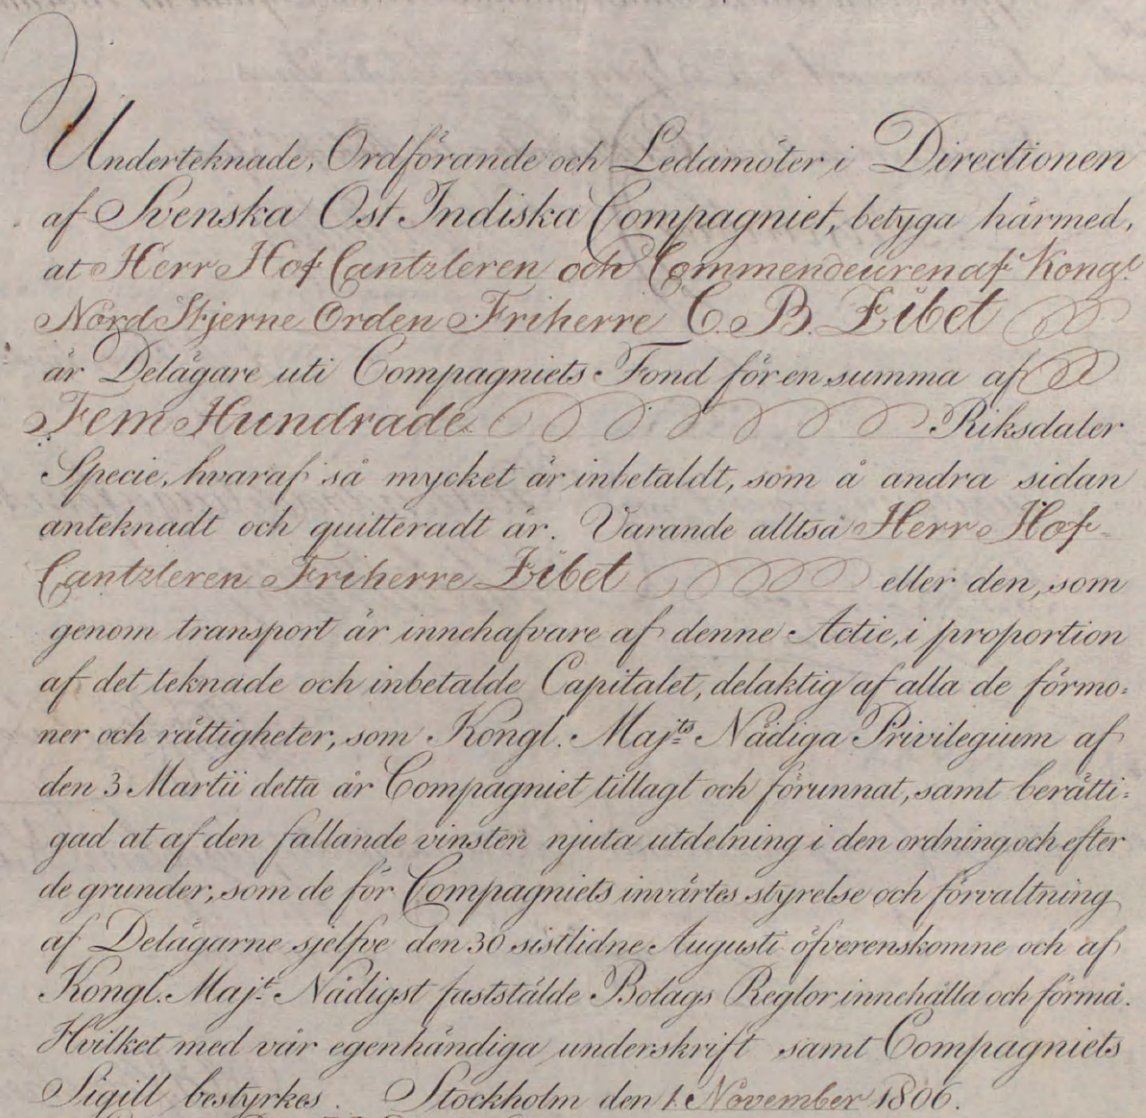 Underteknade, Ordförande och Ledamöter i Directionen
af Svenska Ost Indiska Compagniet, betyga härmed,
at Herr Hof Cantzleren och Commendeuren af Kongl.
Nord Stjerne Orden Friherre C. B. Zibet
är Delägare uti Compagniets Fond för en summa af
Fem Hundrade Riksdaler
Specie, hvaraf så mycket är inbetaldt, som å andra sidan
anteknadt och quitteradt är. Varande alltså Herr Hof-
Cantzleren Friherre Zibet eller den, som
genom transport är innehafvare af denne Actie, i proportion
af det teknade och inbetalde Capitalet, delaktig af alla de förmo:
ner och rättigheter, som Kongl. Maj:ts Nådiga Privilegium af
den 3 Martii detta år Compagniet tillagt och förunnat, samt berätti:
gad at af den fallande vinsten njuta utdelning i den ordning och efter
de grunder, som de för Compagniets invärtes styrelse och förvaltning
af Delägarne sjelfve den 30 sistlidne Augusti öfverenskomne och af
Kongl. Maj:t Nådigst fastställde Bolags Reglor innehålla och förmå.
Hvilket med vår egenhändiga underskrift samt Compagniets
Sigill bestyrkes. Stockholm den 1. November 1806.